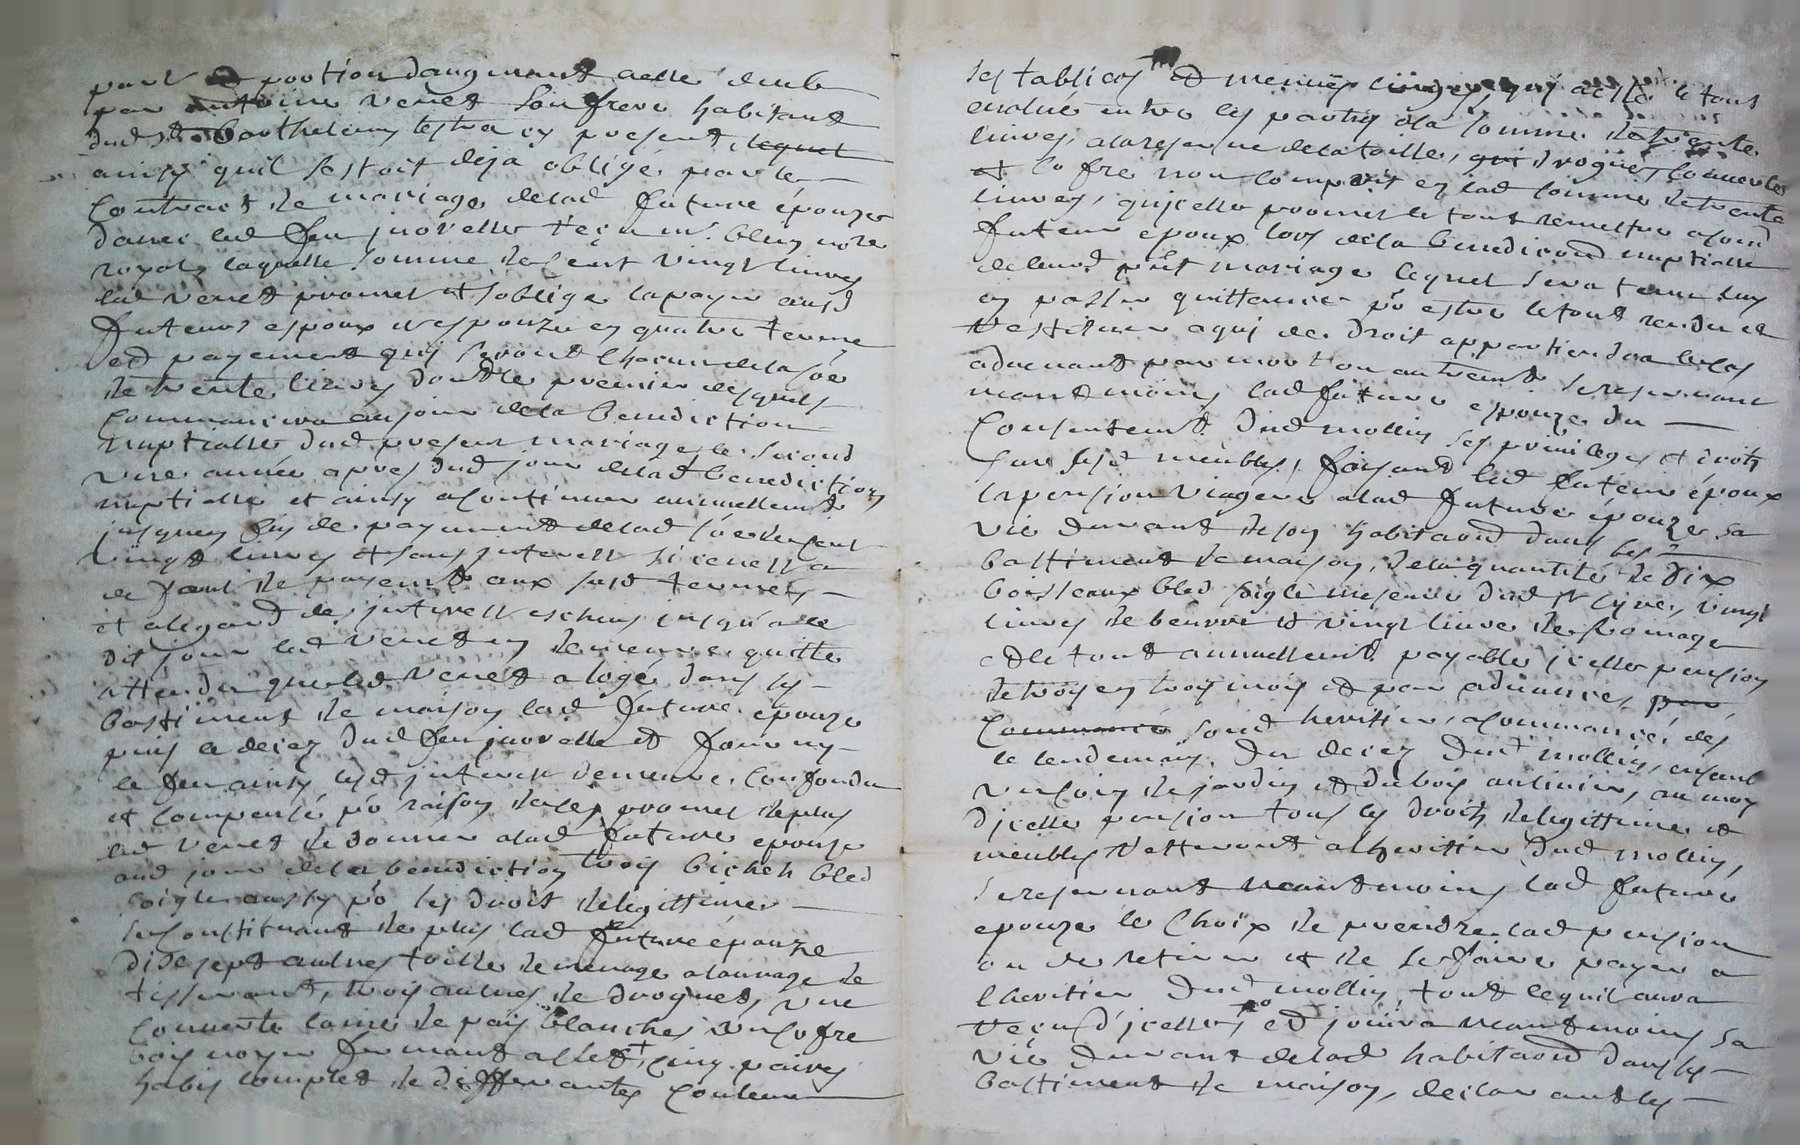 pour portion daugmant a elle deub
par antoine Venet son frere habitant
dud St Barthelemy lestra cy present, lequel
ainsy quil sestoit deja obligé par le
Contract de mariage delad future épouze
davec led feu jnovelle reçu me Bluy nore
royal, laquelle somme de cent vingt livres
led Venet promet et soblige la payer ausd
futeurs espoux et espouze en quatre terme
et payements quy seront chacun de la soe
de trente livres dont le premier desquels
commancera au jour de la benediction
nuptialle dud present mariage, le second
une année apres dud jour delad benediction
nuptielle et ainsy a continuer annuellement
jusques fin de payement delad soe de cent
vingt livres et sans jnterest si ce nest a
de faut de payement aux susd termes
et a legard des jnterest escheus jusqua ce
dit jour led Venet en demeure quitte
attendu que led Venet a logé dans ses
bastiment de maison lad future épouze
puis le decez dud feu jnovelle et fourny
le feu ainsy lesd jnterest demeure confondu
et compensé po raison de ce promet de plus
led Venet de donner a lad future epouze
aud jour de la benediction trois bichets bled
soigle aussy po ses droit de legittime
se constituant de plus lad future épouze
dix sept aulnes toille de menage a lauvage de
tisserant, trois aulnes de droguet, une
couverte laine de païs blanche, un cofre
bois noyer fermant a clef + cinq paires
habis complet de differantes couleur
ses tabliers et menües linges, le tout
evalué entre les partys a la somme de trente
livres, a la reserve de la toille, droguet, couverte
et cofre non comprit en lad somme de trente
livres, qujcelle promet le tout remettre a sond
futeur epoux lors de la benediction nuptialle
de leurd pnt mariage lequel sera tenu luy
en passer quittance po estre le tout rendu et
restituer a quj de droit appartiendra le cas
advenant par mort ou autrement se reservant
neantmoins lad future espouze du
consentement dud mollin ses privileges et droits
sur sesd meubles, faisant led futeur époux
la pension viagere a lad future épouze sa
vie durant de son habitaon dans ses
bastiment de maison, de la quantité de dix
boisseaux bled soigle mesure dud St Cyre, vingt
livres de beurre et vingt livre de fromage
et le tout annuellement payable jcelle pension
de trois en trois mois et par advance, par
Commance sond heritier, a commancé des
le lendemain du decez dud mollin, ensanl
un coin de jardin et du bois au limier, au moy
djcelle pension tous les droits de legittime et
meubles resteront a lheritier dud mollin,
se reservant neantmoins lad future
epouze le choix de prendre lad pension
ou de retirer et de se faire payer a
lheritier dud mollin, tout ce quil aura
reçu djcelle, et jouira neantmoins sa
vie durant delad habitaon dans ses
bastiment de maison, declarant les